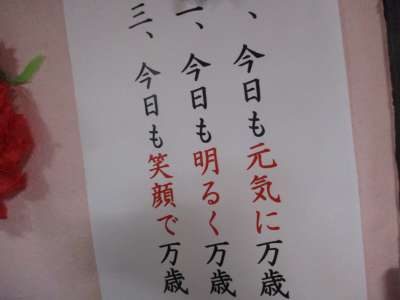 、今日も元気に万歳
一、今日も明るく万歳
三、今日も笑顔で万歳